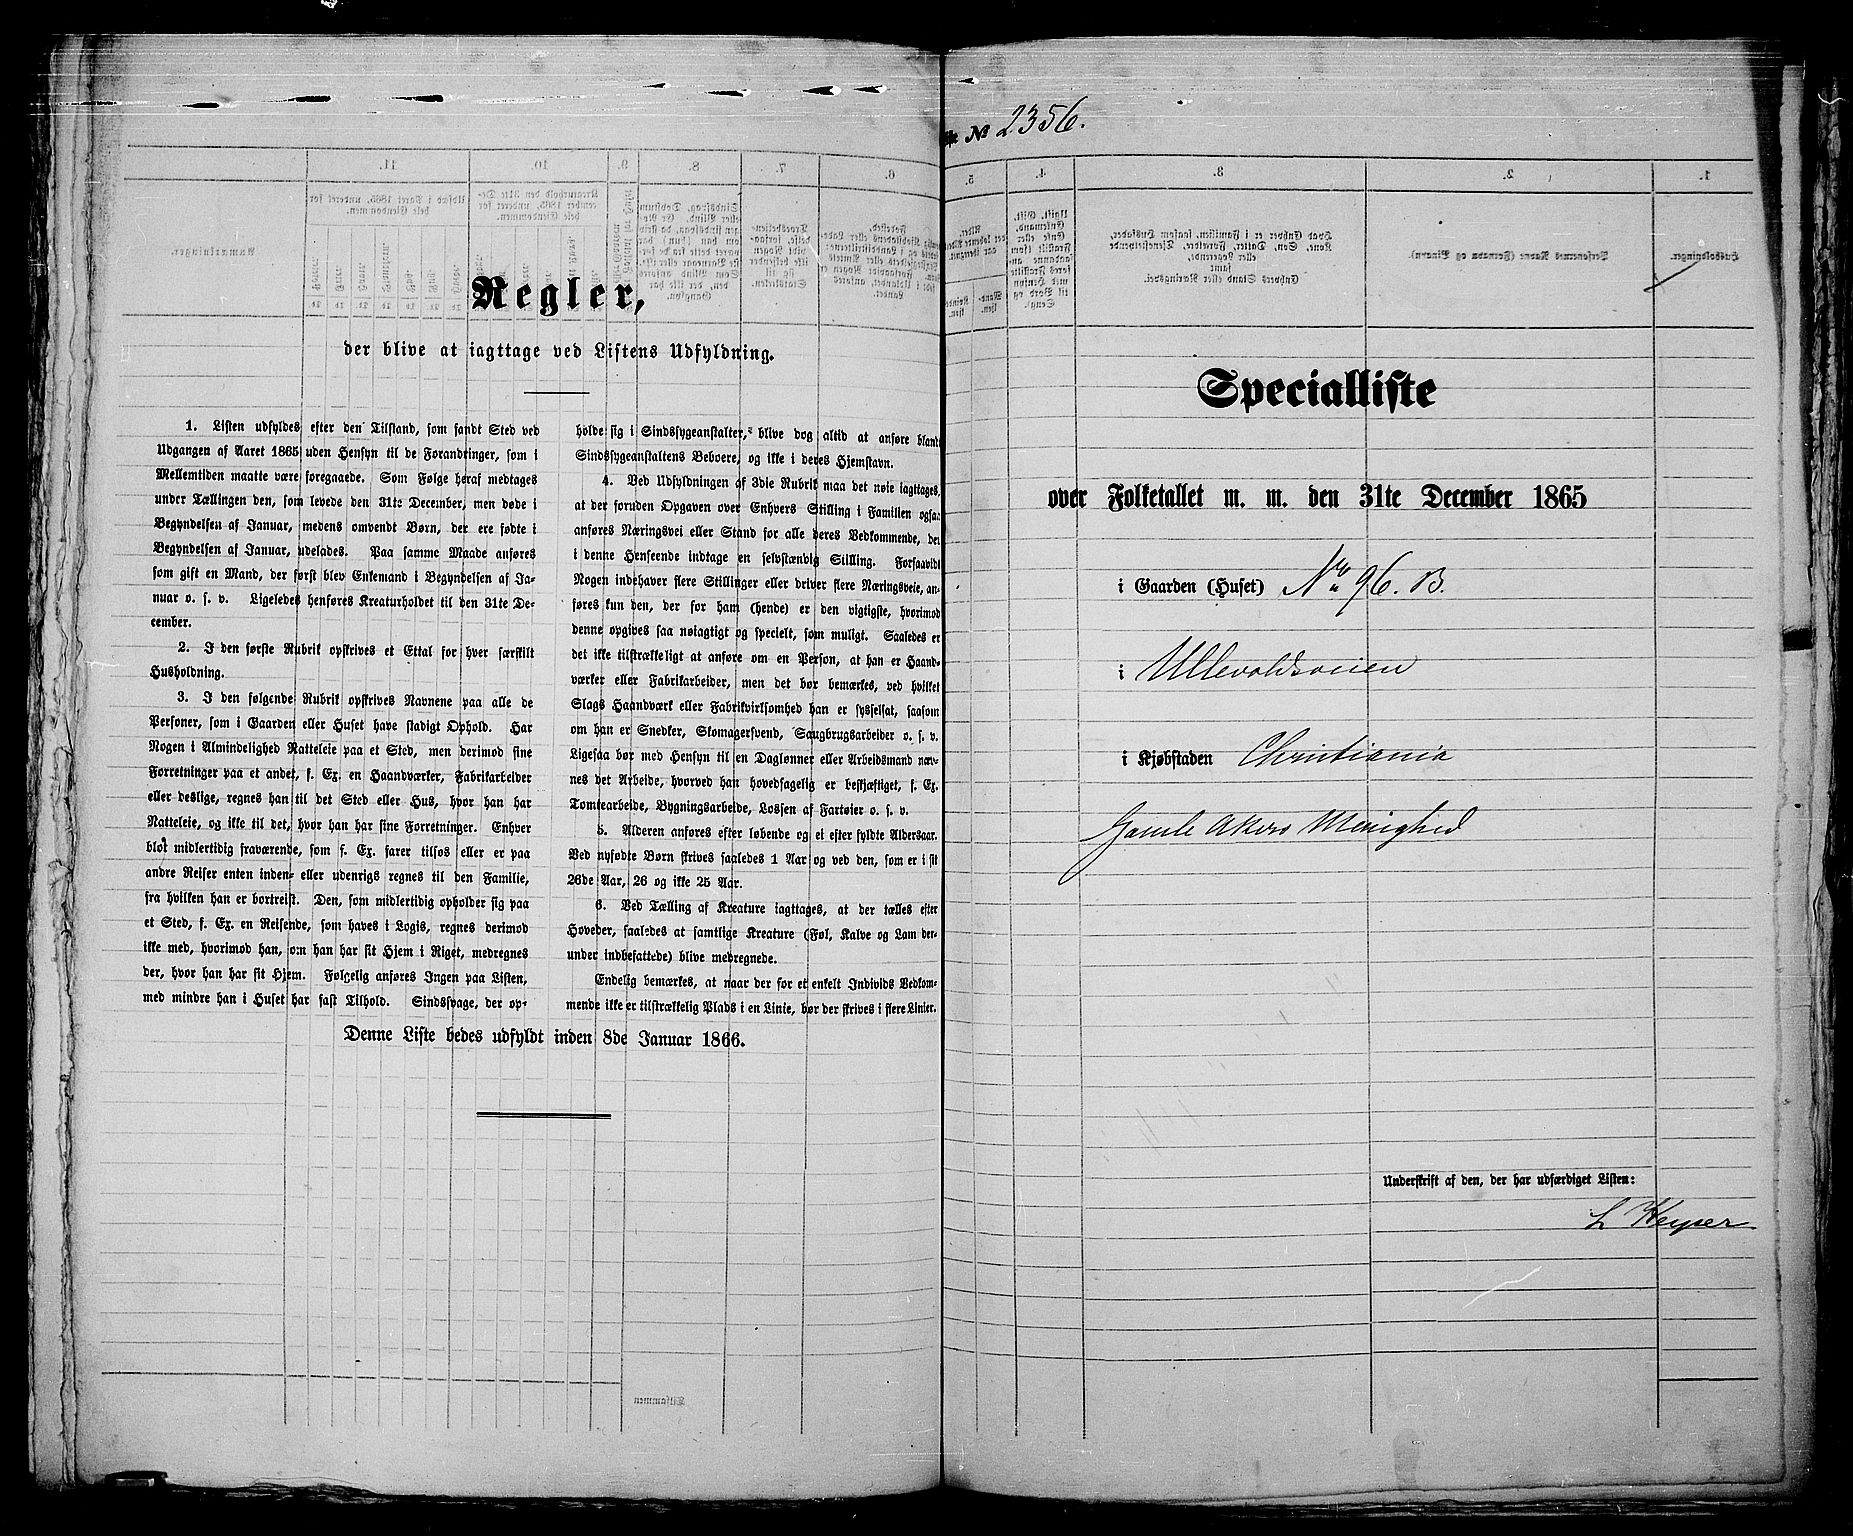 Regler,
der blive at iagttage ved Listens Udfyldning.
1. Listen udfyldes efter den Tilstand, som fandt Sted ved
Udgangen af Aaret 1865 uden Hensyn til de Forandringer, som i
Mellemtiden maatte være foregaaede. Som Følge heraf medtages
under Tællingen den, som levede den 31te December, men døde i
Begyndelsen af Januar, medens omvendt Børn, der ere fødte i
Begyndelsen af Januar, udelades. Paa samme Maade anføres
som gift en Mand, der først blev Enkemand i Begyndelsen af Ja-
nuar o. s. v. Ligeledes henføres Kreaturholdet til den 31te De-
cember.
2. I den første Rubrik opskrives et Ettal for hver særskilt
Husholdning.
3. I den følgende Rubrik opskrives Navnene paa alle de
Personer, som i Gaarden eller Huset have stadigt Ophold. Har
Nogen i Almindelighed Natteleie paa et Sted, men derimod sine
Forretninger paa et andet, f. Ex. en Haandværker, Fabrikarbeider
eller deslige, regnes han til det Sted eller Hus, hvor han har
Natteleie, og ikke til det, hvor han har sine Forretninger. Enhver
blot midlertidig fraværende, som f. Ex. farer tilsøs eller er paa
andre Reiser enten inden- eller udenrigs regnes til den Familie,
fra hvilken han er bortreist. Den, som midlertidig opholder sig paa
et Sted, f. Ex. en Reisende, som haves i Logis, regnes derimod
ikke med, hvorimod han, om han har sit Hjem i Riget, medregnes
der, hvor han har sit Hjem. Følgelig anføres Ingen paa Listen,
med mindre han i Huset har fast Tilhold. Sindssvage, der op-
holde sig i Sindssygeanstalter, blive dog altid at anføre blandt
Sindssygeanstaltens Beboere, og ikke i deres Hjemstavn.
4. Ved Udfyldningen af 3die Rubrik maa det nøie iagttages,
at der foruden Opgaven over Enhvers Stilling i Familien ogsaa
anføres Næringsvei eller Stand for alle deres Vedkommende, der
i denne Henseende indtage en selvstændig Stilling. Forsaavidt
Nogen indehaver flere Stillinger eller driver flere Næringsveie, an-
føres kun den, der for ham (hende) er den vigtigste, hvorimod
denne opgives saa nøiagtigt og specielt, som muligt. Saaledes er
det ikke tilstrækkeligt at anføre om en Person, at han er Haand-
værker eller Fabrikarbeider, men det bør bemærkes, ved hvilket
Slags Haandværk eller Fabrikvirksomhed han er sysselsat, saasom
om han er Snedker, Skomagersvend, Saugbrugsarbeider o. s. v.
Ligesaa bør med Hensyn til en Daglønner eller Arbeidsmand næv-
nes det Arbeide, hvorved han hovedsagelig er beskjæftiget, f. Ex.
Tomtearbeide, Bygningsarbeide, Lossen af Fartøier o. s. v.
5. Alderen anføres efter løbende og ei efter fyldte Aldersaar.
Ved nyfødte Børn skrives saaledes 1 Aar og ved den, som er i sit
26de Aar, 26 og ikke 25 Aar.
6. Ved Tælling af Kreature iagttages, at der tælles efter
Hoveder, saaledes at samtlige Kreature (Føl, Kalve og Lam der-
under indbefattede) blive medregnede.
Endelig bemærkes, at naar der for et enkelt Individs Vedkom-
mende ikke er tilstrækkelig Plads i en Linie, bør der skrives i flere Linier.
Denne Liste bedes udfyldt inden 8de Januar 1866.
No 2356.
Specialliste
over Folketallet m. m. den 31te December 1865
i Gaarden (Huset) No 96. B.
i Ullevoldsveien
i Kjøbstaden Christiania
Gamle Akers Menighed
Underskrift af den, der har udfærdiget Listen:
L Keyser